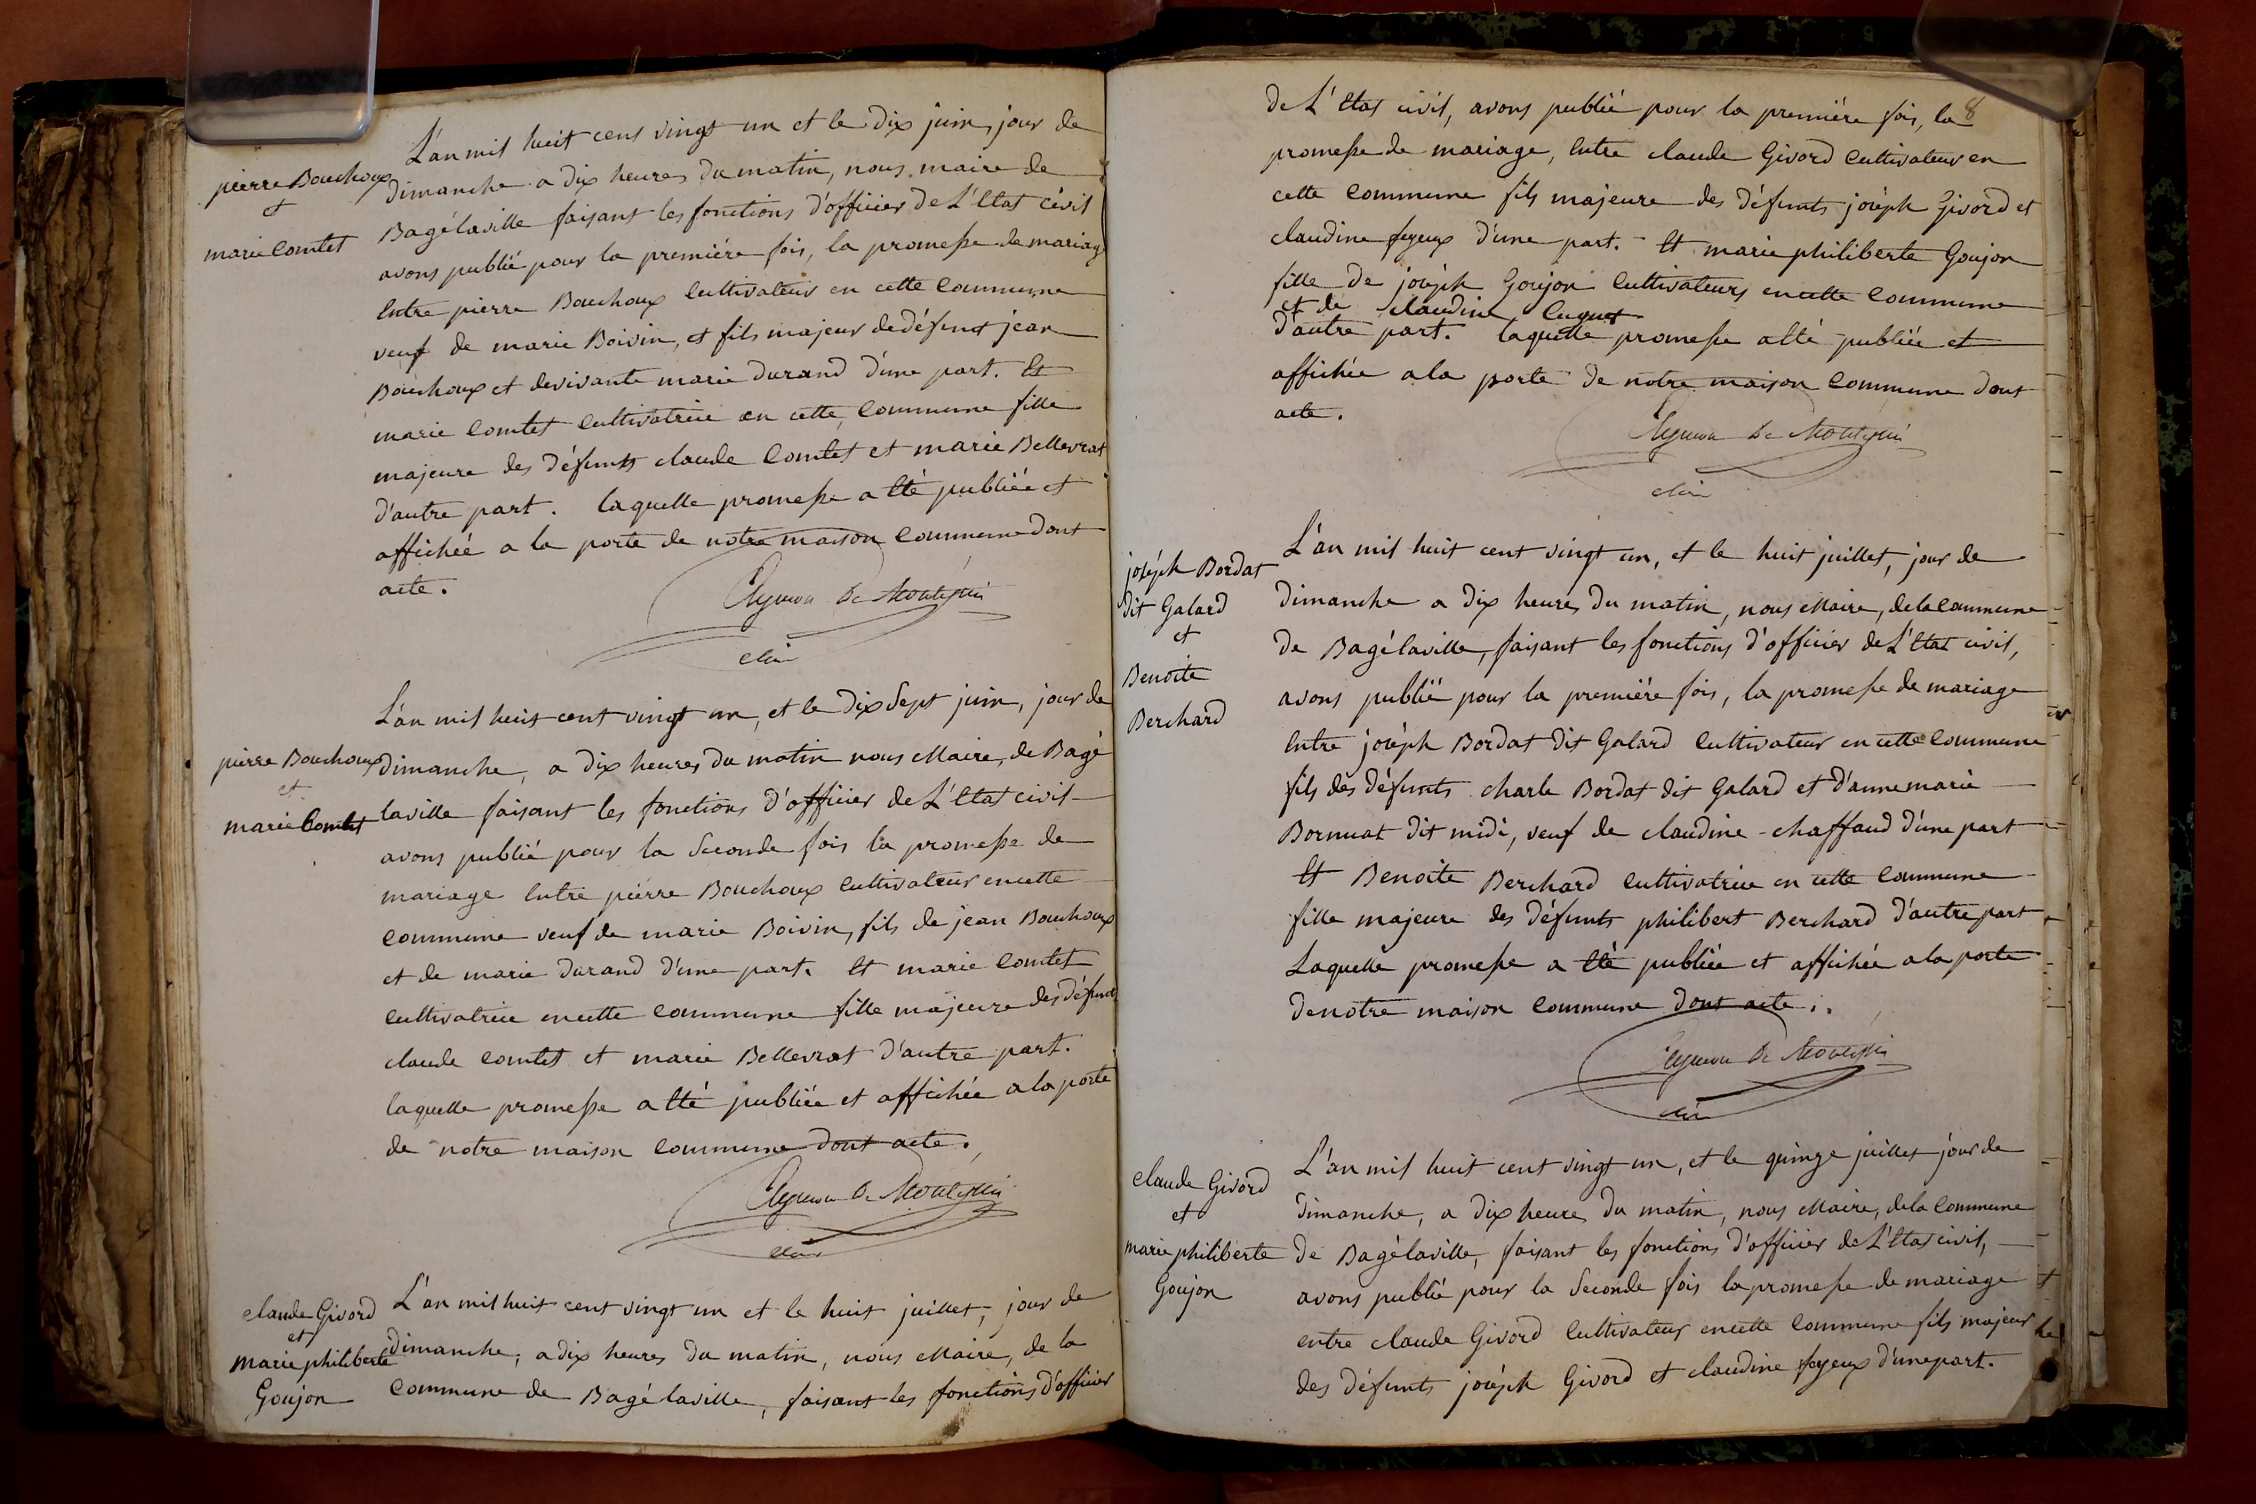 pierre Bouchoux
et
marie Comtet
L'an mil huit cent vingt un et le dix juin, jour de
dimanche a dix heures du matin, nous maire de
Bagélaville faisant les fonctions d'officier de L'Etat civil
avons publié pour la première fois, la promesse de mariage
Entre pierre Bouchoux Cultivateur en cette Commune
veuf de marie Boivin, et fils majeur de défunt jean
Bouchoux et de vivante marie durand d'une part. Et
marie Comtet Cultivatrice en cette Commune fille
majeure des défunts claude Comtet et marie Bellevrat
d'autre part. laquelle promesse a Eté publiée et
affichée a la porte de notre maison Commune dont
acte.
pierre Bouchoux
et
marie Comtet
L'an mil huit cent vingt un, et le dix Sept juin, jour de
dimanche, a dix heures du matin nous Maire, de Bagé
laville faisant les fonctions d'officier de L'Etat civil
avons publié pour la Seconde fois la promesse de
mariage Entre pierre Bouchoux Cultivateur en cette
Commune veuf de marie Boivin, fils de jean Bouchoux
et de marie durand d'une part. Et marie Comtet
Cultivatrice en cette Commune fille majeure des défunts
claude Comtet et marie Bellevrat d'autre part.
laquelle promesse a Eté publiée et affichée a la porte
de notre maison Commune dont acte.
claude Givord
et
marie philiberte
Goujon
L'an mil huit cent vingt un et le huit juillet, jour de
dimanche, a dix heures du matin, nous Maire, de la
Commune de Bagé laville, faisant les fonctions d'officier
8
de L'Etat civil, avons publié pour la première fois, la
promesse de mariage, Entre claude Givord Cultivateur en
cette Commune fils majeure des défunts joséph Givord et
claudine feyeux d'une part. Et marie philiberte Goujon
fille de joséph Goujon Cultivateurs en cette Commune
et de Claudine Cuguet
d'autre part. laquelle promesse a Eté publiée et
affichée a la porte de notre maison Commune dont
acte.
joséph Bordat
dit Galard
et
Benoite
Berchard
L'an mil huit cent vingt un, et le huit juillet, jour de
dimanche a dix heures du matin, nous Maire, de la Commune
de Bagélaville, faisant les fonctions d'officier de L'Etat civil,
avons publié pour la première fois, la promesse de mariage
Entre joséph Bordat dit Galard Cultivateur en cette Commune
fils des défunts charle Bordat dit Galard et d'anne marie
Bornuat dit midi, veuf de claudine chaffaud d'une part
Et Benoite Berchard Cultivatrice en cette Commune
fille majeure des défunts philibert Berchard d'autre part
Laquelle promesse a Eté publiée et affichée a la porte
de notre maison Commune dont acte.
claude Givord
et
marie philiberte
Goujon
L'an mil huit cent vingt un, et le quinze juillet jour de
dimanche, a dix heures du matin, nous Maire, de la Commune
de Bagélaville, faisant les fonctions d'officier de L'Etat civil,
avons publié pour la Seconde fois la promesse de mariage
entre claude Givord Cultivateur en cette Commune fils majeur
des défunts joséph Givord et claudine feyeux d'une part.